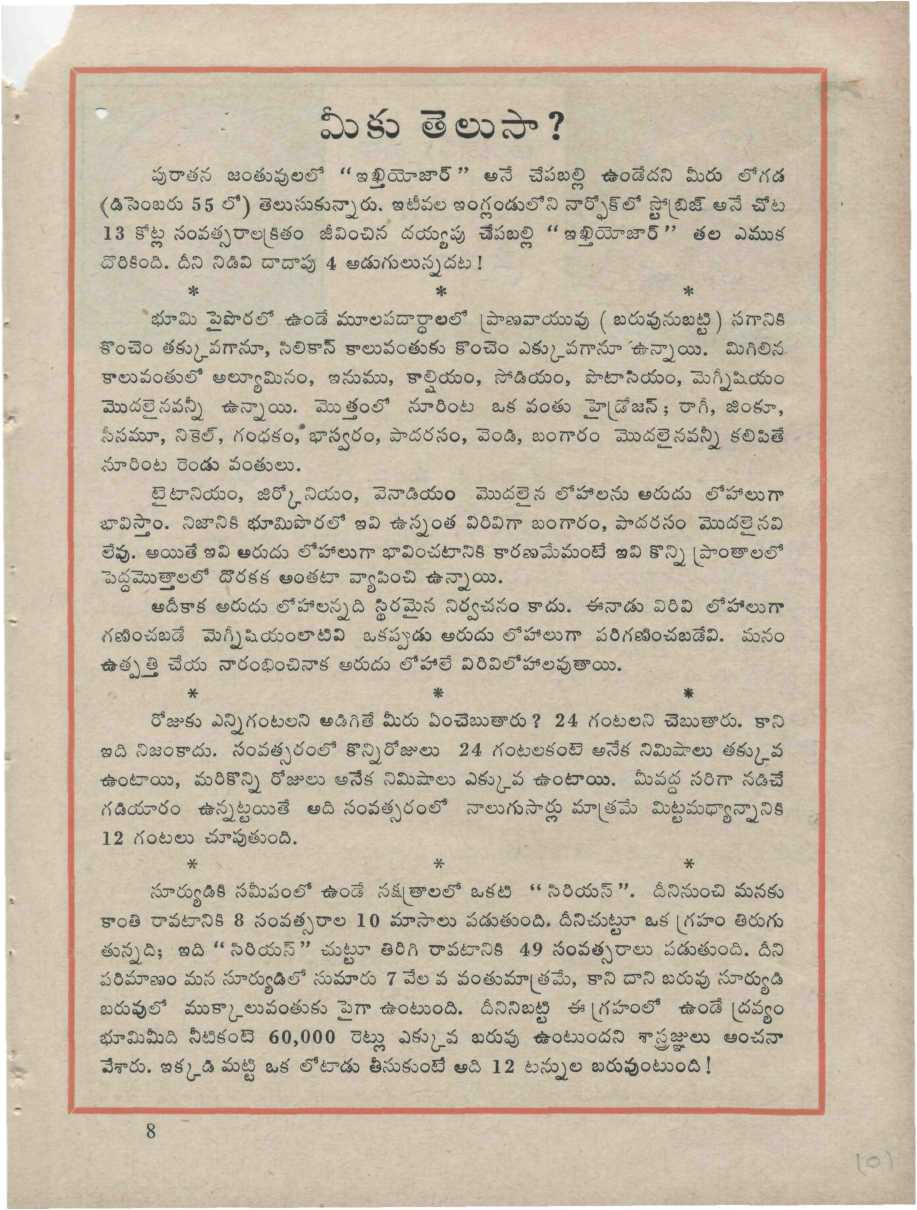 మీకు తెలుసా?
పురాతన జంతువులలో “ఇఖ్తియోజార్” అనే చేపబల్లి ఉండేదని మీరు లోగడ
(డిసెంబరు 55 లో) తెలుసుకున్నారు. ఇటీవల ఇంగ్లండులోని నార్ఫోక్‌లో స్టోబ్రిజ్ అనే చోట
13 కోట్ల సంవత్సరాలక్రితం జీవించిన దయ్యపు చేపబల్లి “ఇఖ్తియోజార్” తల ఎముక
దొరికింది. దీని నిడివి దాదాపు 4 అడుగులున్నదట!
* * *
భూమి పైపొరలో ఉండే మూలపదార్థాలలో ప్రాణవాయువు (బరువునుబట్టి) సగానికి
కొంచెం తక్కువగానూ, సిలికాన్ కాలువంతుకు కొంచెం ఎక్కువగానూ ఉన్నాయి. మిగిలిన
కాలువంతులో అల్యూమినం, ఇనుము, కాల్షియం, సోడియం, పొటాసియం, మెగ్నీషియం
మొదలైనవన్నీ ఉన్నాయి. మొత్తంలో నూరింట ఒక వంతు హైడ్రోజన్; రాగీ, జింకూ,
సీసమూ, నికెల్, గంధకం, భాస్వరం, పాదరసం, వెండి, బంగారం మొదలైనవన్నీ కలిపితే
నూరింట రెండు వంతులు.
టైటానియం, జిర్కోనియం, వెనాడియం మొదలైన లోహాలను అరుదు లోహాలుగా
భావిస్తాం. నిజానికి భూమిపొరలో ఇవి ఉన్నంత విరివిగా బంగారం, పాదరసం మొదలైనవి
లేవు. అయితే ఇవి అరుదు లోహాలుగా భావించటానికి కారణమేమంటే ఇవి కొన్ని ప్రాంతాలలో
పెద్దమొత్తాలలో దొరకక అంతటా వ్యాపించి ఉన్నాయి.
అదీకాక అరుదు లోహాలన్నది స్థిరమైన నిర్వచనం కాదు. ఈనాడు విరివి లోహాలుగా
గణించబడే మెగ్నీషియంలాటివి ఒకప్పుడు అరుదు లోహాలుగా పరిగణించబడేవి. మనం
ఉత్పత్తి చేయ నారంభించినాక అరుదు లోహాలే విరివిలోహాలవుతాయి.
* * *
రోజుకు ఎన్నిగంటలని అడిగితే మీరు ఏంచెబుతారు? 24 గంటలని చెబుతారు. కాని
ఇది నిజంకాదు. సంవత్సరంలో కొన్నిరోజులు 24 గంటలకంటె అనేక నిమిషాలు తక్కువ
ఉంటాయి, మరికొన్ని రోజులు అనేక నిమిషాలు ఎక్కువ ఉంటాయి. మీవద్ద సరిగా నడిచే
గడియారం ఉన్నట్టయితే అది సంవత్సరంలో నాలుగుసార్లు మాత్రమే మిట్టమధ్యాన్నానికి
12 గంటలు చూపుతుంది.
* * *
సూర్యుడికి సమీపంలో ఉండే నక్షత్రాలలో ఒకటి “సిరియస్”. దీనినుంచి మనకు
కాంతి రావటానికి 8 సంవత్సరాల 10 మాసాలు పడుతుంది. దీనిచుట్టూ ఒక గ్రహం తిరుగు
తున్నది; ఇది “సిరియస్” చుట్టూ తిరిగి రావటానికి 49 సంవత్సరాలు పడుతుంది. దీని
పరిమాణం మన సూర్యుడిలో సుమారు 7 వేల వ వంతుమాత్రమే, కాని దాని బరువు సూర్యుడి
బరువులో ముక్కాలువంతుకు పైగా ఉంటుంది. దీనినిబట్టి ఈ గ్రహంలో ఉండే ద్రవ్యం
భూమిమీది నీటికంటె 60,000 రెట్లు ఎక్కువ బరువు ఉంటుందని శాస్త్రజ్ఞులు అంచనా
వేశారు. ఇక్కడి మట్టి ఒక లోటాడు తీసుకుంటే అది 12 టన్నుల బరువుంటుంది!
8
(0)